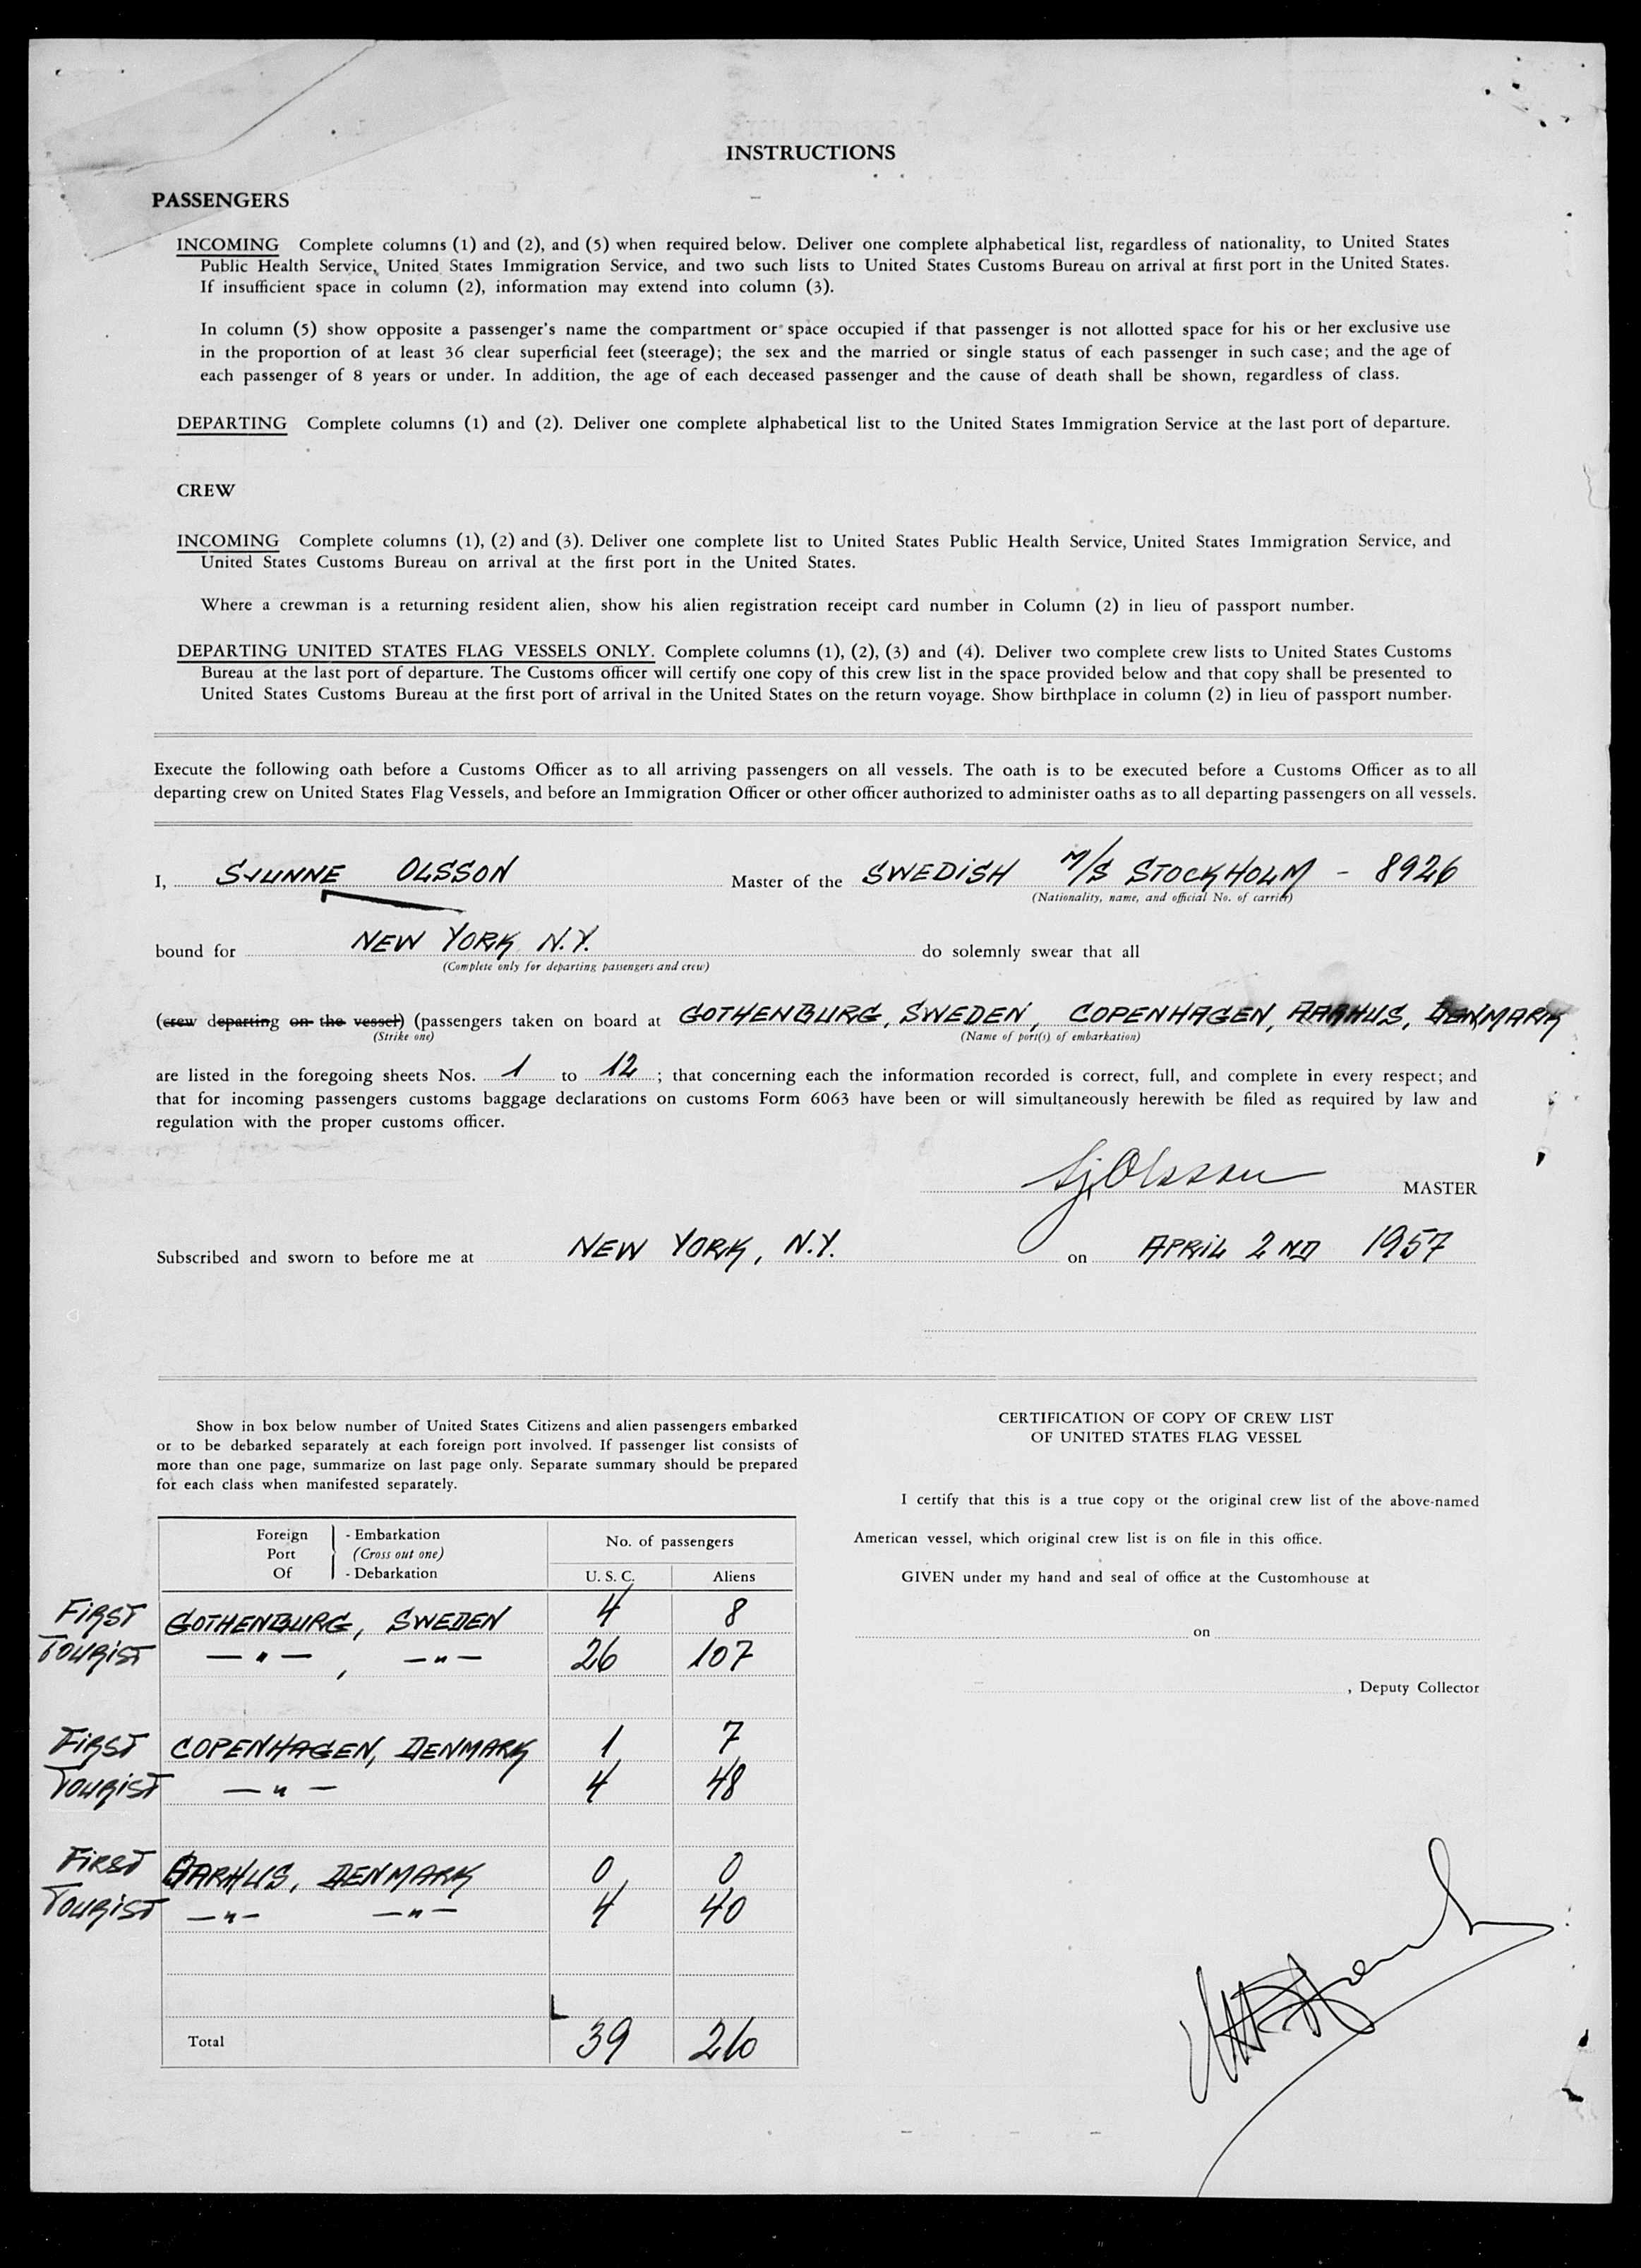 INSTRUCTIONS
PASSENGERS
INCOMING Complete columns (1) and (2), and (5) when required below. Deliver one complete alphabetical list, regardless of nationality, to United States
Public Health Service, United States Immigration Service, and two such lists to United States Customs Bureau on arrival at first port in the United States.
If insufficient space in column (2), information may extend into column (3).
In column (5) show opposite a passenger's name the compartment or space occupied if that passenger is not allotted space for his or her exclusive use
in the proportion of at least 36 clear superficial feet (steerage); the sex and the married or single status of each passenger in such case; and the age of
each passenger of 8 years or under. In addition, the age of each deceased passenger and the cause of death shall be shown, regardless of class.
DEPARTING Complete columns (1) and (2). Deliver one complete alphabetical list to the United States Immigration Service at the last port of departure.
CREW
INCOMING Complete columns (1), (2) and (3). Deliver one complete list to United States Public Health Service, United States Immigration Service, and
United States Customs Bureau on arrival at the first port in the United States.
Where a crewman is a returning resident alien, show his alien registration receipt card number in Column (2) in lieu of passport number.
DEPARTING UNITED STATES FLAG VESSELS ONLY. Complete columns (1), (2), (3) and (4). Deliver two complete crew lists to United States Customs
Bureau at the last port of departure. The Customs officer will certify one copy of this crew list in the space provided below and that copy shall be presented to
United States Customs Bureau at the first port of arrival in the United States on the return voyage. Show birthplace in column (2) in lieu of passport number.
Execute the following oath before a Customs Officer as to all arriving passengers on all vessels. The oath is to be executed before a Customs Officer as to all
departing crew on United States Flag Vessels, and before an Immigration Officer or other officer authorized to administer oaths as to all departing passengers on all vessels.
I, SJUNNE OLSSON Master of the SWEDISH M/S STOCKHOLM - 8926
(Nationality, name, and official No. of carrier)
bound for NEW YORK N.Y. do solemnly swear that all
(Complete only for departing passengers and crew)
(crew departing on the vessel) (passengers taken on board at GOTHENBURG, SWEDEN, COPENHAGEN, AARHUS, DENMARK
(Strike one) (Name of port(s) of embarkation)
are listed in the foregoing sheets Nos. 1 to 12; that concerning each the information recorded is correct, full, and complete in every respect; and
that for incoming passengers customs baggage declarations on customs Form 6063 have been or will simultaneously herewith be filed as required by law and
regulation with the proper customs officer.
Sj.Olsson MASTER
Subscribed and sworn to before me at NEW YORK, N.Y. on APRIL 2ND 1957
Show in box below number of United States Citizens and alien passengers embarked
or to be debarked separately at each foreign port involved. If passenger list consists of
more than one page, summarize on last page only. Separate summary should be prepared
for each class when manifested separately.
Foreign - Embarkation No. of passengers
Port (Cross out one)
Of - Debarkation U. S. C. Aliens
FIRST GOTHENBURG, SWEDEN 4 8
TOURIST — " — , — " — 26 107
FIRST COPENHAGEN, DENMARK 1 7
TOURIST — " — 4 48
FIRST AARHUS, DENMARK 0 0
TOURIST — " — — " — 4 40
Total 39 210
CERTIFICATION OF COPY OF CREW LIST
OF UNITED STATES FLAG VESSEL
I certify that this is a true copy of the original crew list of the above-named
American vessel, which original crew list is on file in this office.
GIVEN under my hand and seal of office at the Customhouse at
on
, Deputy Collector